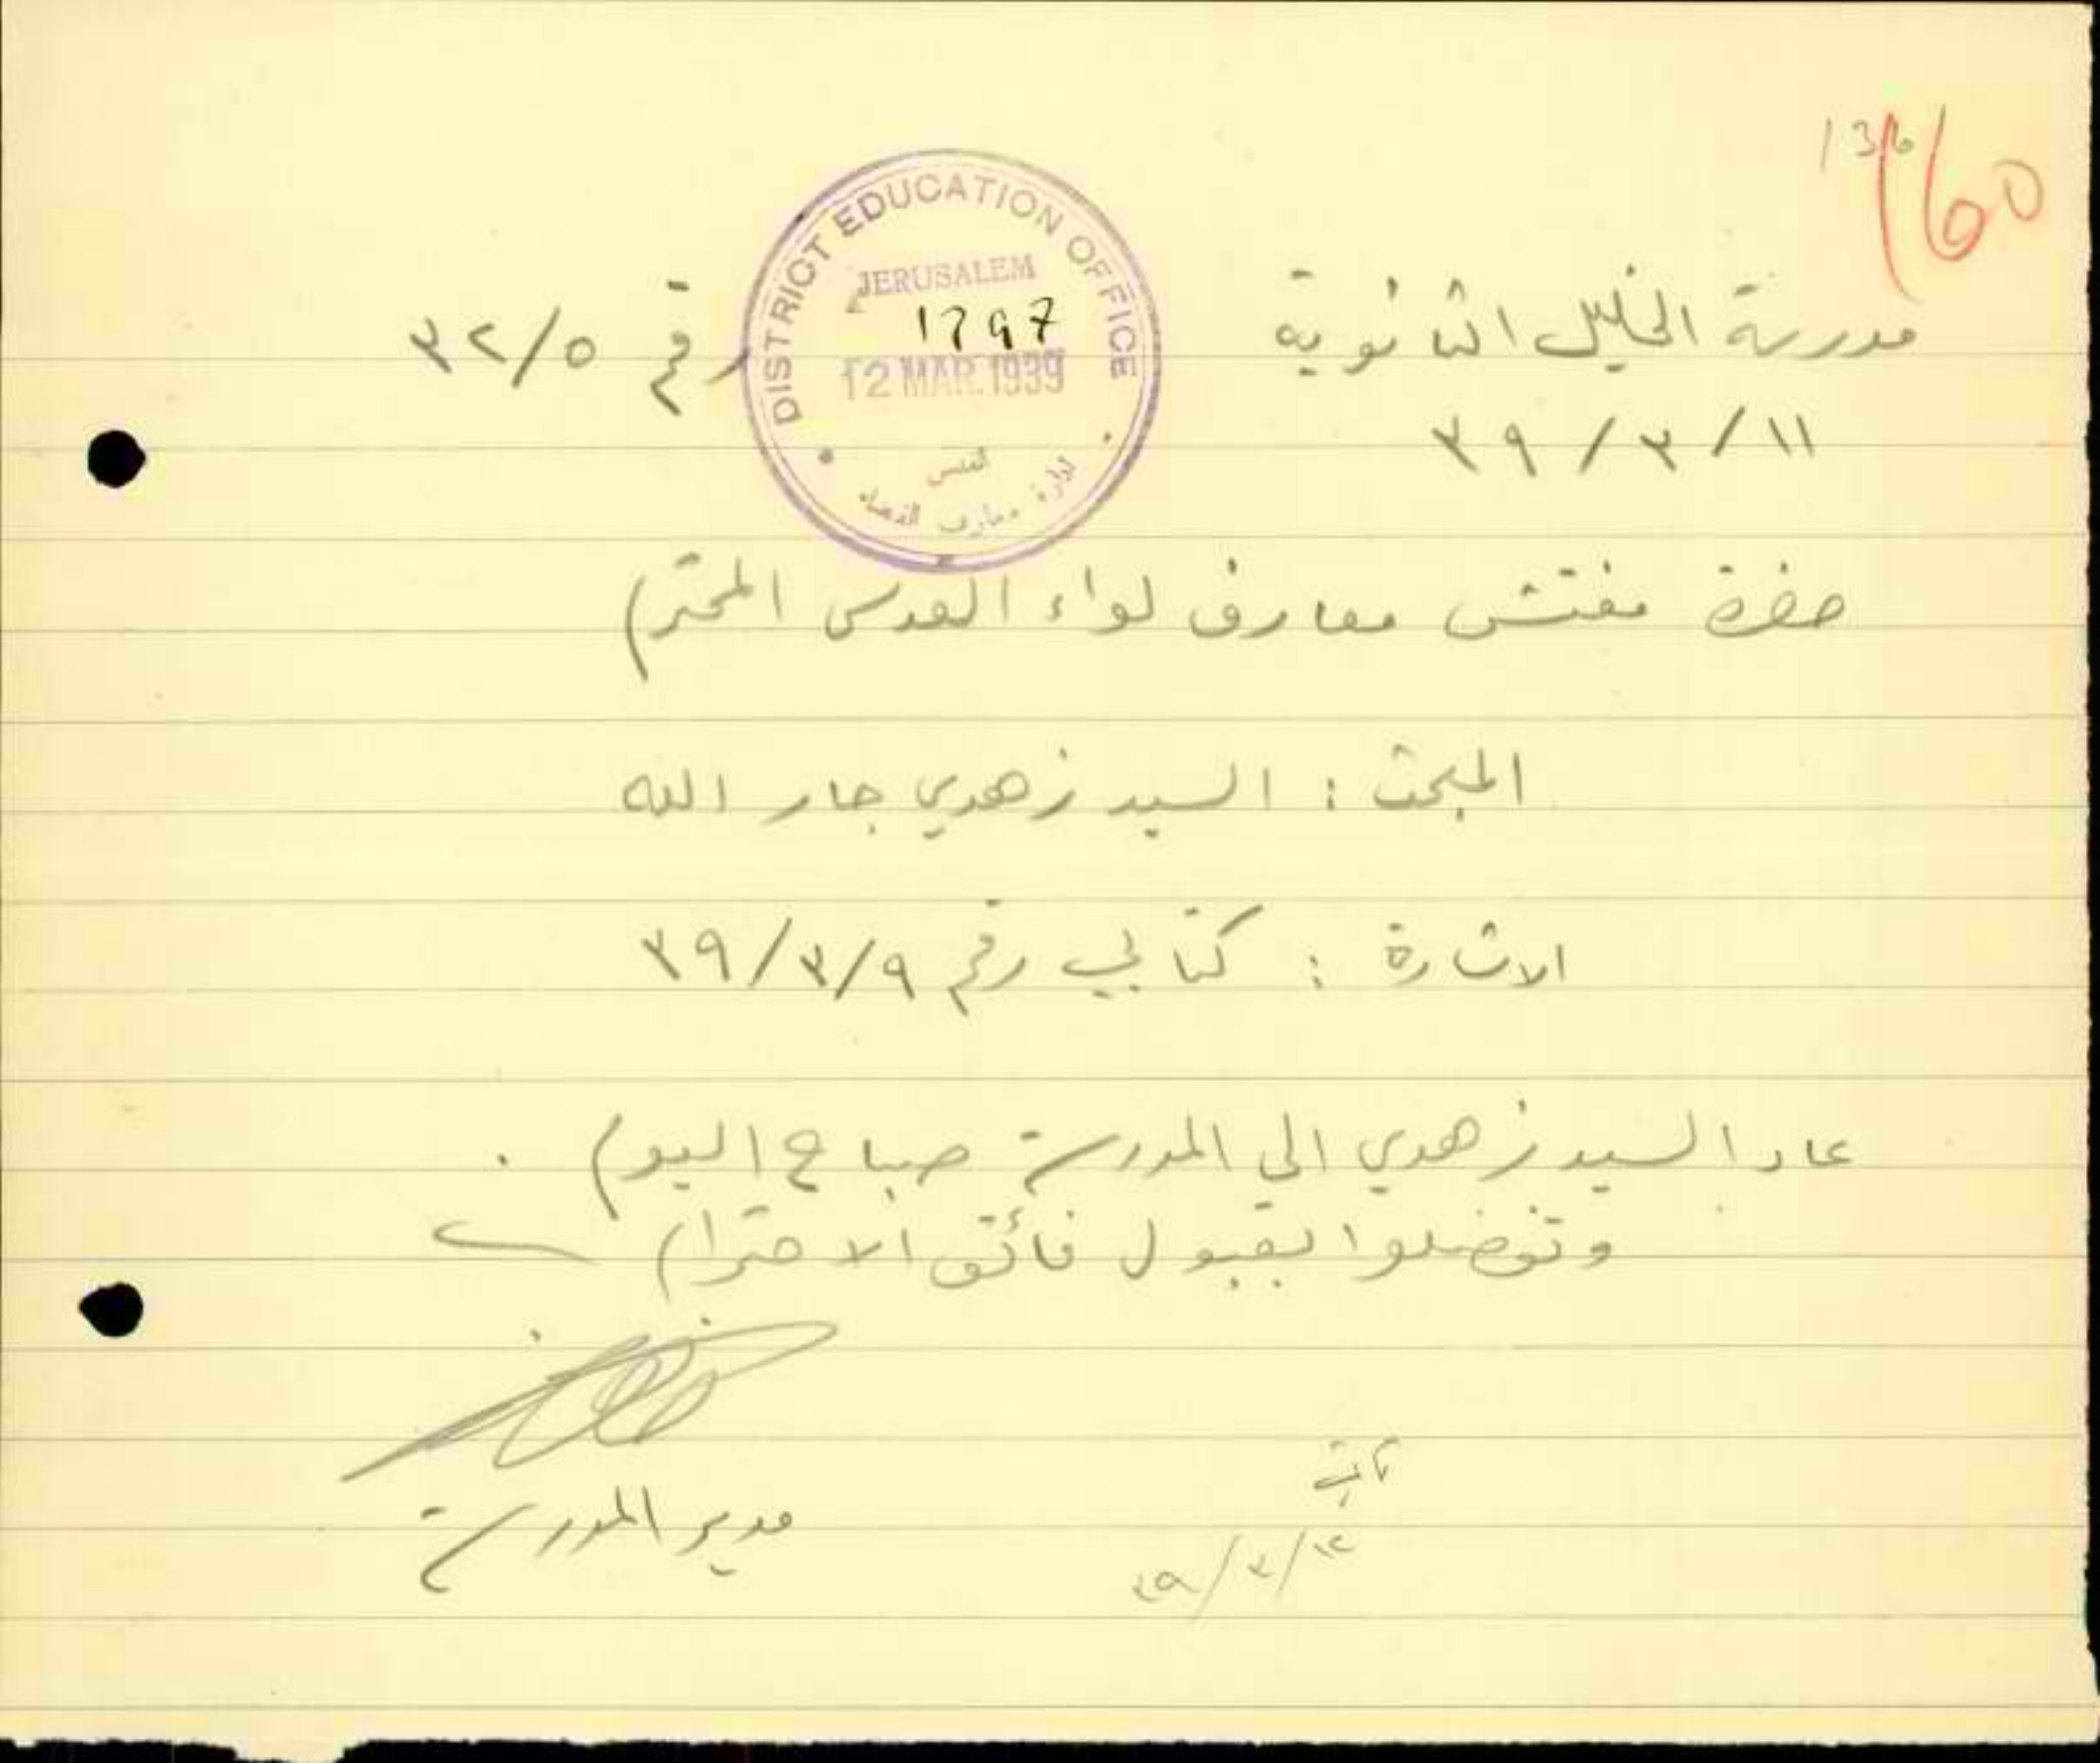 160
مدرسة الخليل الثانوية
رقم ٣٢/٥
DISTRICT EDUCATION OFFICE
JERUSALEM
1797
12 MAR. 1939
القدس
ادارة معارف القضاء
١١ / ٣ / ٣٩
حضرة مفتش معارف لواء القدس المحترم
المبحث : السيد زهدي جار الله
الاشارة : كتابي رقم ٣٩/٣/٩
عاد السيد زهدي الى المدرسة صباح اليوم .
وتفضلوا بقبول فائق الاحترام
مدير المدرسة
١٢/٣/٣٩